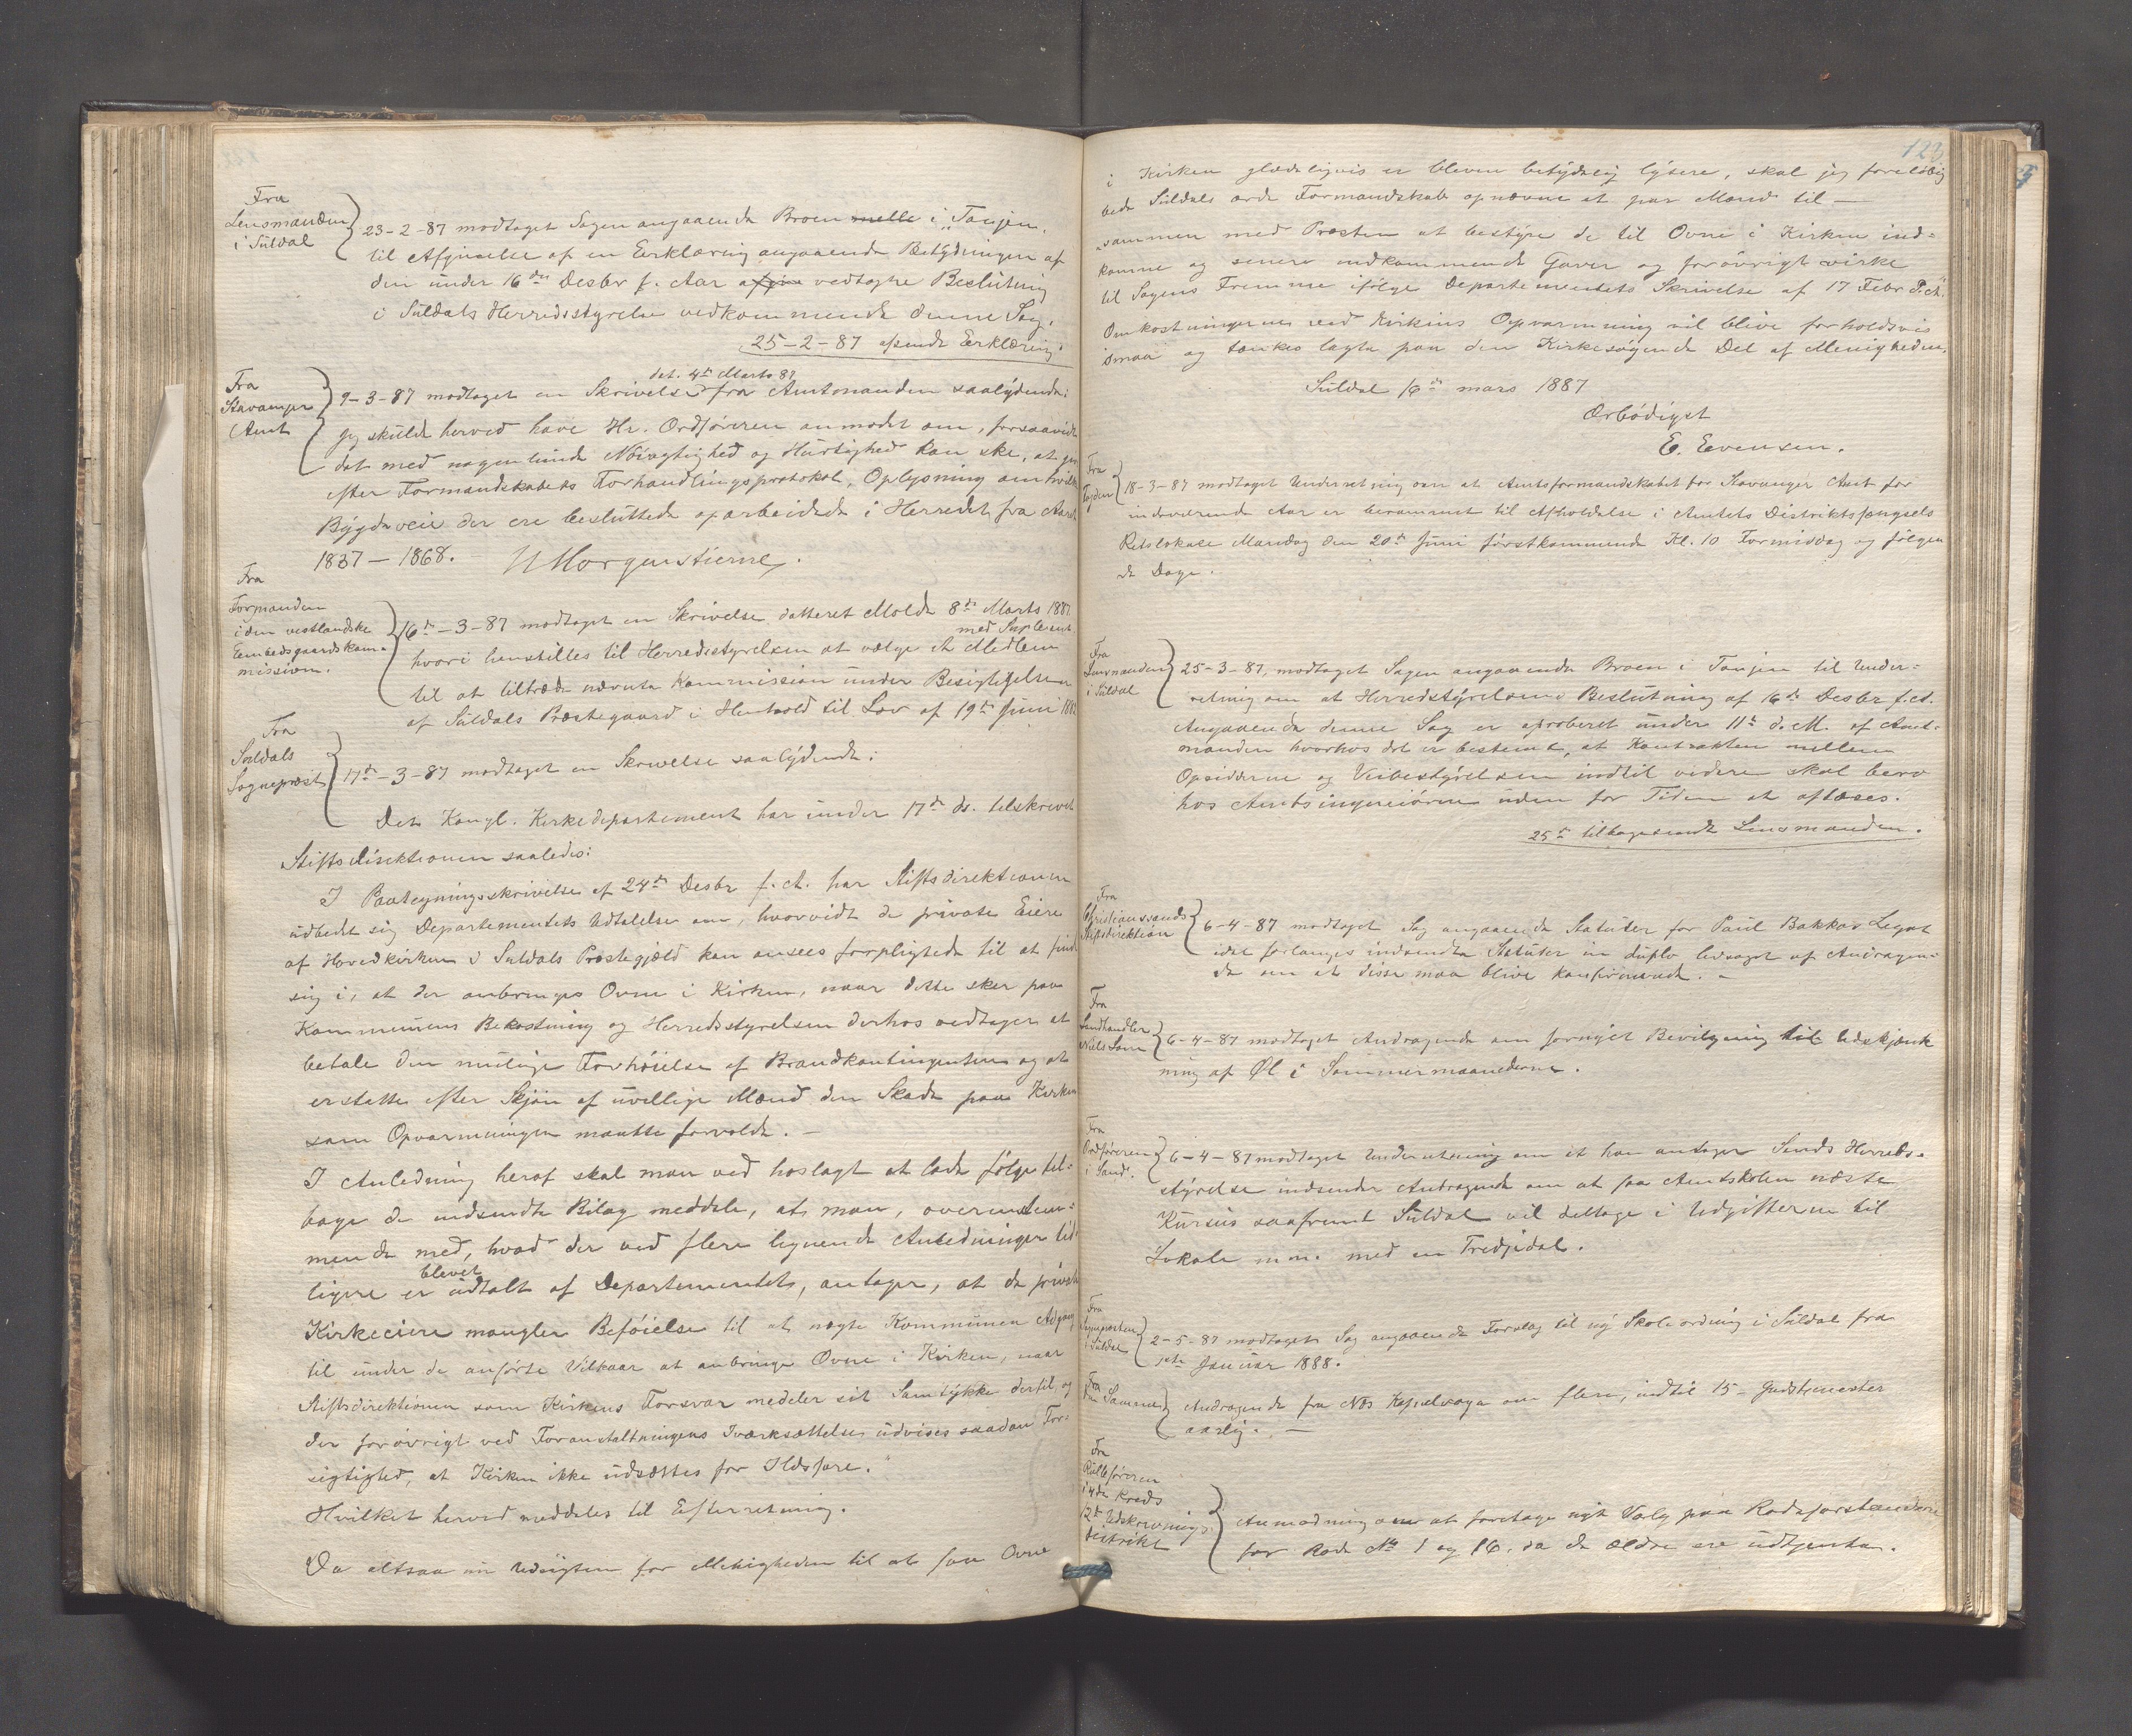 Fra
Lensmanden
i Suldal
23-2-87 modtaget Sagen angaaende Broen melle i "Tanjen"
til Afgivelse af en Eerklæring angaaende Betydningen af
den under 16de Desbr f. Aar vedtagne Beslutning
i Suldals Herredsstyrelse vedkommende denne Sag.
25-2-87 afsendt Eerklæring
Fra
Stavanger
Amt
dat. 4de Marts 87
9-3-87 modtaget en Skrivelse fra Amtmanden saalydende:
Jeg skulde herved have Hr. Ordføreren anmodet om, forsaavidt
det med nogenlunde Nøiagtighed og Hurtighed kan ske, at gi
efter Formandskabets Forhandlingsprotokol, Oplysning om hvilke
Bygdeveie der ere besluttede oparbeidede i Herredet fra Aaret
1837 – 1868. Morgenstierne.
Fra
Formanden
i den vestlandske
Eembedsgaardskom-
mission.
16de-3-87 modtaget en Skrivelse datteret Molde 8de Marts 1887
med Supleant
hvori henstilles til Herredsstyrelsen at vælge et Medlem
til at tiltræde nævnte Kommission under Besigtigelsen
af Suldals Præstegaard i Henhold til Lov af 19de Juni 1882
Fra
Suldals
Sogneprest
17de-3-87 modtaget en Skrivelse saalydende:
Det Kongl. Kirkedepartement har under 17de ds. tilskrevet
Stiftsdirektionen saaledes:
I Paategningsskrivelse af 24de Desbr f. A. har Stiftsdirektionen
udbedt sig Departementets Udtalelse om, hvorvidt de private Eiere
af Hovedkirken i Suldals Præstegjæld kan ansees forpligtede til at finde
sig i, at der anbringes Ovne i Kirken, naar dette sker paa
Kommunens Bekostning og Herredsstyrelsen derhos vedtager at
betale den mulige Forhøielse af Brandkontingenten og at
erstatte efter Skjøn af uvillige Mænd den Skade paa Kirken
som Opvarmningen maatte forvolde. –
I Anledning heraf skal man ved hoslagt at lade følge til-
bage de indsendte Bilag meddele, at man, overensstem-
mende med, hvad der ved flere lignende Anledninger tid-
blevet
ligere er udtalt af Departementet, antager, at de private
Kirkeeiere mangler Beføielse til at nægte Kommunen Adgang
til under de anførte Vilkaar at anbringe Ovne i Kirken, naar
Stiftsdirektionen som Kirkens Forsvar meddeler sit Samtykke dertil, og
der forøvrigt ved Foranstaltningens Iværksættelse udvises saadan For-
sigtighed, at Kirken ikke udsættes for Ildsfare."
Hvilket herved meddeles til Efterretning.
Da altsaa nu Udsigten for Menigheden til at faa Ovne
123
i Kirken glædeligvis er bleven betydelig lysere, skal jeg foreløbig
bede Suldals ærede Formandskab opnævne et par Mænd til –
sammen med Præsten at bestyre de til Ovne i Kirken ind-
komne og senere indkommende Gaver og forøvrigt virke
til Sagens Fremme ifølge Departementets Skrivelse af 17 Febr d. A.
Omkostningerne ved Kirkens Opvarmning vil blive forholdsvis
smaa og tænkes lagte paa den Kirkesøgende Del af Menigheden.
Suldal 16de mars 1887
Ærbødigst
E. Evensen.
Fra
Fogden
18-3-87 modtaget Underretning om at Amtsformandskabet for Stavanger Amt for
indeværende Aar er berammet til Afholdelse i Amtets Distriktsfængsels
Retslokale Mandag den 20de Juni førstkommende Kl. 10 Formiddag og følgen
de Dage.
Fra
Lensmanden
i Suldal
25-3-87, modtaget Sagen angaaende Broen i Tanjen til Under-
retning om at Herredstyrelsens Beslutning af 16de Desbr f. A.
Angaaende denne Sag er aproberet under 11te d. M. af Amt-
manden hvorhos det er bestemt, at Kontrakten mellem
Opsidderne og Veibestyrelsen indtil videre skal bero
hos Amtsingeniøren uden for Tiden at aflæses.
25de tilbagesendt Lensmanden.
Fra
Christianssands
Stiftsdirektion
6-4-87 modtaget Sag angaaende Statuter for Paul Bakkas Legat
idet forlanges indsendte Statuter in duplo ledsaget af Andragen-
de om at disse maa blive konfirmeret. –
Fra
Landhandler
Niels Sann
6-4-87 modtaget Andragende om fornyet Bevilgning til Udskjænk
ning af Øl i Sommermaanederne.
Fra
Ordføreren
i Sand.
6-4-87 modtaget Underretning om at han antager Sands Herreds-
styrelse indsender Andragende om at faa Amtskolen næste
Kursus saafremt Suldal vil deltage i Udgifterne til
Lokale m.m. med en Tredjedel.
Fra
Sognepresten
i Suldal
2-5-87 modtaget Sag angaaende Forslag til ny Skoleordning i Suldal fra
1ste Januar 1888.
Fra
den Samme
Andragende fra Næs Kapelsogn om flere, indtil 15 – Gudstjenester
aarlig. –
Fra
Rulleføreren
i 4de Kreds
12te Udskrivnings-
distrikt
Anmodning om at foretage nyt Valg paa Rodeforstandere
for Rode No 1 og 16, da de ældre ere udtjente.